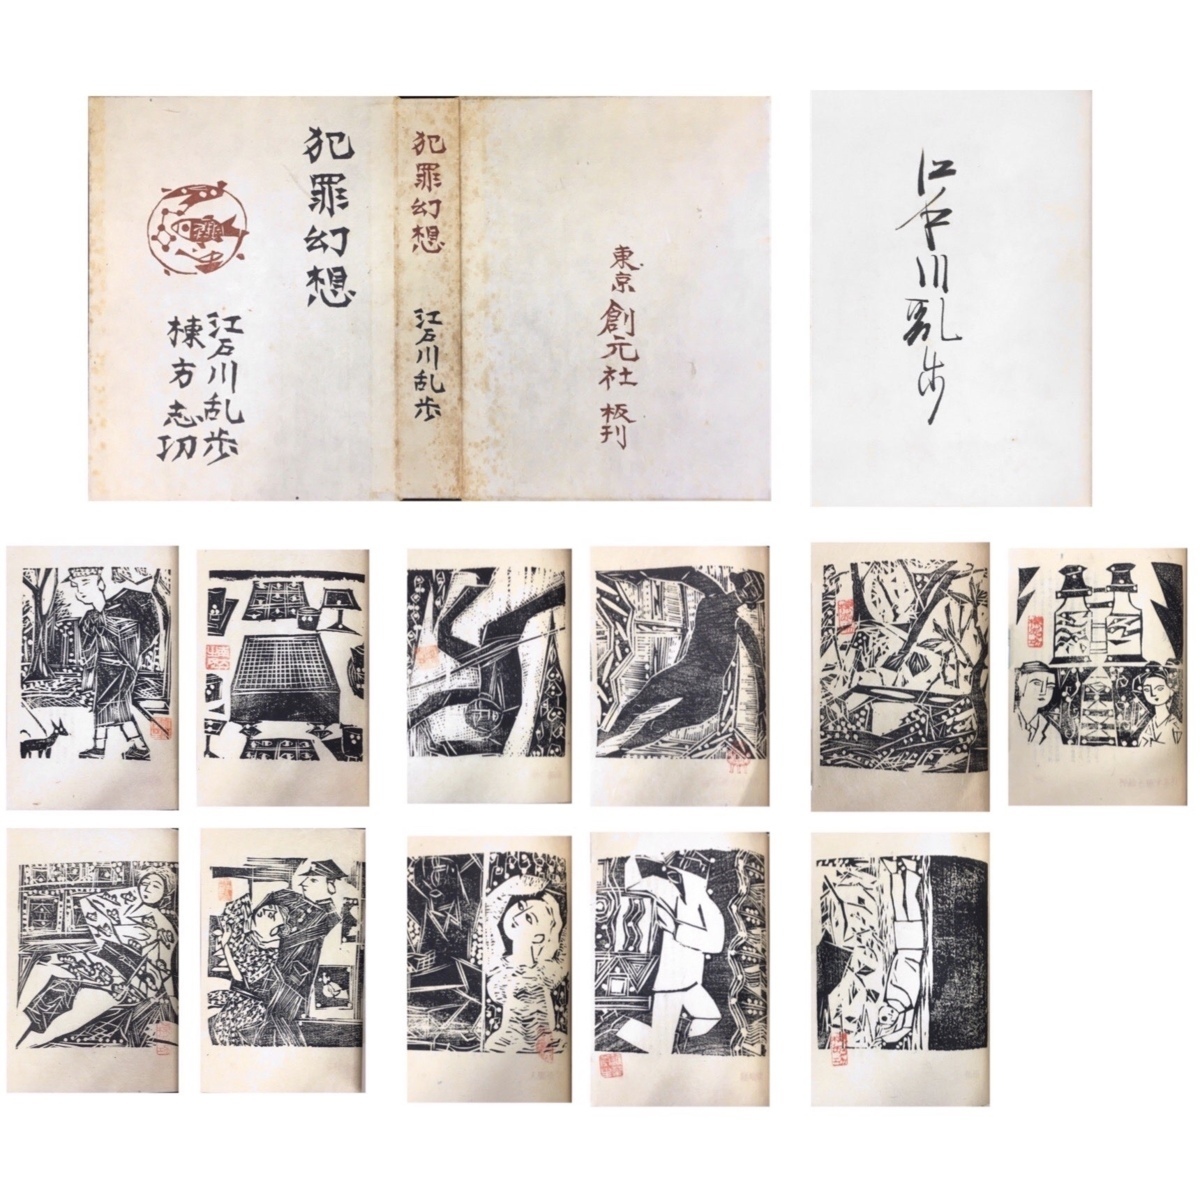 犯罪幻想
江戸川乱歩
棟方志功
犯罪幻想
江戸川乱歩
東京
創元社
板刊
江戸川乱歩